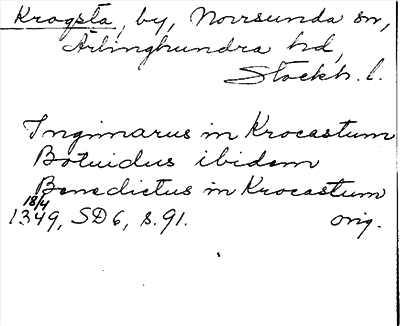 Krogsta, by, Norrsunda sn,
Ärlinghundra hd,
Stockh. l.
Ingimarus in Krocastum
Botuidus ibidem
Benedictus in Krocastum
18/4
1349, SD 6, s. 91. orig.